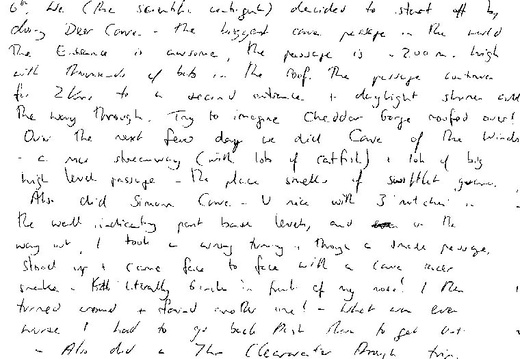 6th. We (the scientific contingent) decided to start off by
doing Deer Cave - the biggest cave passage in the world
The Entrance is awesome, the passage is ~ 200 m. high
with thousands of bats in the roof. The passage continues
for 2 kms to a second entrance + daylight shines all
the way through. Try to imagine Cheddar Gorge roofed over!
Over the next few days we did Cave of the Winds
- a nice streamway (with lots of catfish) + lots of big
high level passage - the place smells of swiftlet guano.
Also did Simon's Cave - V nice with 3' notches in
the wall indicating past base levels, and on the
way out, I took a wrong turning, through a small passage,
stood up + came face to face with a cave racer
snake - literally 6 inches in front of my nose! I then
turned around + found another one! - What was even
worse I had to go back past them to get out.
- Also did a 7km Clearwater through trip